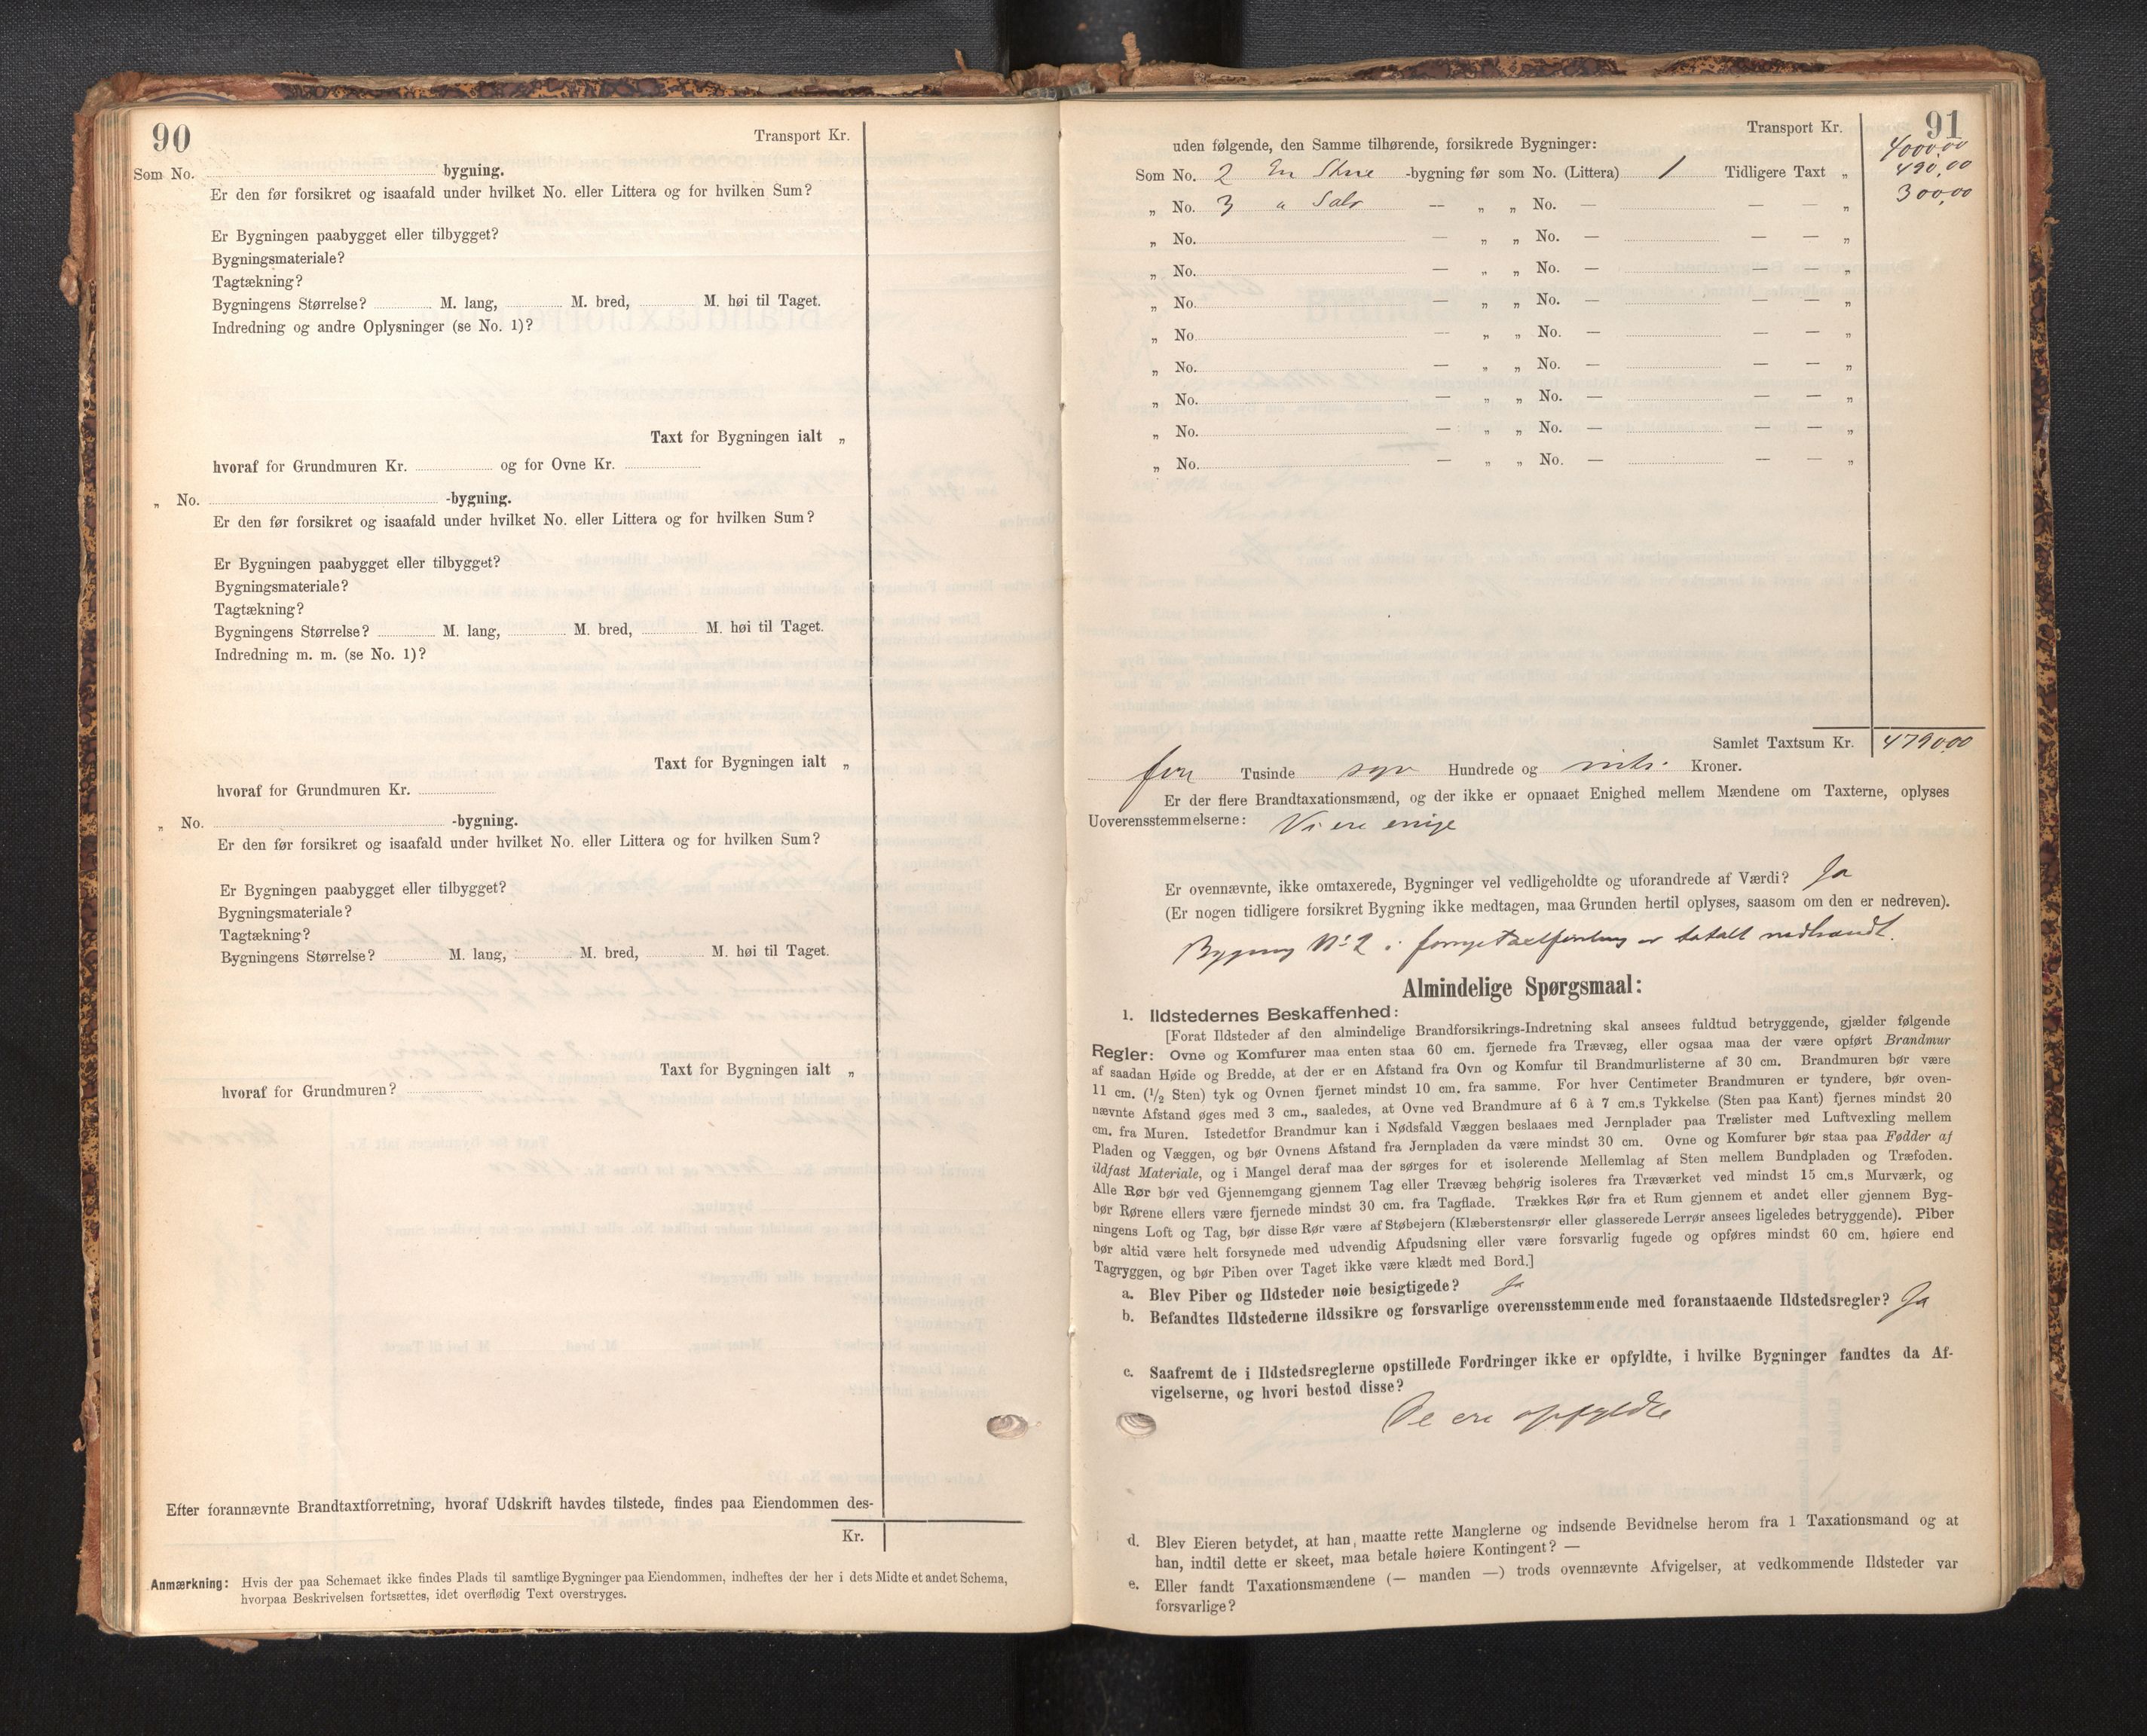 90
Transport Kr.
Som No. bygning.
Er den før forsikret og isaafald under hvilket No. eller Littera og for hvilken Sum?
Er Bygningen paabygget eller tilbygget?
Bygningsmateriale?
Tagtækning?
Bygningens Størrelse? M. lang, M. bred, M. høi til Taget.
Indredning og andre Oplysninger (se No. 1)?
Taxt for Bygningen ialt „
hvoraf for Grundmuren Kr. og for Ovne Kr.
„ No. -bygning.
Er den før forsikret og isaafald under hvilket No. eller Littera og for hvilken Sum?
Er Bygningen paabygget eller tilbygget?
Bygningsmateriale?
Tagtækning?
Bygningens Størrelse? M. lang, M. bred, M. høi til Taget.
Indredning m. m. (se No. 1)?
Taxt for Bygningen ialt „
hvoraf for Grundmuren Kr.
„ No. -bygning.
Er den før forsikret og isaafald under hvilket No. eller Littera og for hvilken Sum?
Er Bygningen paabygget eller tilbygget?
Bygningsmateriale?
Tagtækning?
Bygningens Størrelse? M. lang, M. bred, M. høi til Taget.
Taxt for Bygningen ialt „
hvoraf for Grundmuren?
Efter forannævnte Brandtaxtforretning, hvoraf Udskrift havdes tilstede, findes paa Eiendommen des-
Kr.
Anmærkning: Hvis der paa Schemaet ikke findes Plads til samtlige Bygninger paa Eiendommen, indheftes der her i dets Midte et andet Schema,
hvorpaa Beskrivelsen fortsættes, idet overflødig Text overstryges.
91
Transport Kr. 4000,00
uden følgende, den Samme tilhørende, forsikrede Bygninger:
Som No. 2 En -bygning før som No. (Littera) 1 Tidligere Taxt „ 490,00
„ No. 3 „ — „ „ No. — — — „ 300,00
„ No. — „ „ No. — — — „
„ No. — „ „ No. — — — „
„ No. — „ „ No. — — — „
„ No. — „ „ No. — — — „
„ No. — „ „ No. — — — „
„ No. — „ „ No. — — — „
„ No. — „ „ No. — — — „
„ No. — „ „ No. — — — „
Samlet Taxtsum Kr. 4790,00
fire Tusinde syv Hundrede og nitti Kroner.
Er der flere Brandtaxationsmænd, og der ikke er opnaaet Enighed mellem Mændene om Taxterne, oplyses
Uoverensstemmelserne: Vi ere enige
Er ovennævnte, ikke omtaxerede, Bygninger vel vedligeholdte og uforandrede af Værdi? Ja
(Er nogen tidligere forsikret Bygning ikke medtagen, maa Grunden hertil oplyses, saasom om den er nedreven).
Bygning No 2 i er totalt nedbrændt.
Almindelige Spørgsmaal:
1. Ildstedernes Beskaffenhed:
[Forat Ildsteder af den almindelige Brandforsikrings-Indretning skal ansees fuldtud betryggende, gjælder følgende
Regler: Ovne og Komfurer maa enten staa 60 cm. fjernede fra Trævæg, eller ogsaa maa der være opført Brandmur
af saadan Høide og Bredde, at der er en Afstand fra Ovn og Komfur til Brandmurlisterne af 30 cm. Brandmuren bør være
11 cm. (1/2 Sten) tyk og Ovnen fjernet mindst 10 cm. fra samme. For hver Centimeter Brandmuren er tyndere, bør oven-
nævnte Afstand øges med 3 cm., saaledes, at Ovne ved Brandmure af 6 à 7 cm.s Tykkelse (Sten paa Kant) fjernes mindst 20
cm. fra Muren. Istedetfor Brandmur kan i Nødsfald Væggen beslaaes med Jernplader paa Trælister med Luftvexling mellem
Pladen og Væggen, og bør Ovnens Afstand fra Jernpladen da være mindst 30 cm. Ovne og Komfurer bør staa paa Fødder af
ildfast Materiale, og i Mangel deraf maa der sørges for et isolerende Mellemlag af Sten mellem Bundpladen og Træfoden.
Alle Rør bør ved Gjennemgang gjennem Tag eller Trævæg behørig isoleres fra Træværket ved mindst 15 cm.s Murværk, og
bør Rørene ellers være fjernede mindst 30 cm. fra Tagflade. Trækkes Rør fra et Rum gjennem et andet eller gjennem Byg-
ningens Loft og Tag, bør disse Rør være af Støbejern (Klæberstensrør eller glasserede Lerrør ansees ligeledes betryggende). Piber
bør altid være helt forsynede med udvendig Afpudsning eller være forsvarlig fugede og opføres mindst 60 cm. høiere end
Tagryggen, og bør Piben over Taget ikke være klædt med Bord.]
a. Blev Piber og Ildsteder nøie besigtigede? Ja
b. Befandtes Ildstederne ildssikre og forsvarlige overensstemmende med foranstaaende Ildstedsregler? Ja
c. Saafremt de i Ildstedsreglerne opstillede Fordringer ikke er opfyldte, i hvilke Bygninger fandtes da Af-
vigelserne, og hvori bestod disse?
De ere opfyldte
d. Blev Eieren betydet, at han, maatte rette Manglerne og indsende Bevidnelse herom fra 1 Taxationsmand og at
han, indtil dette er skeet, maa betale høiere Kontingent? —
e. Eller fandt Taxationsmændene (— manden —) trods ovennævnte Afvigelser, at vedkommende Ildsteder var
forsvarlige?